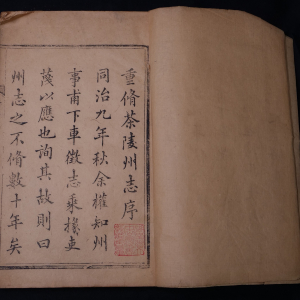 重脩茶陵州志序
同治九年秋余權知州
事甫下車徵志乘掾吏
蔑以應也詢其故則曰
州志之不脩數十年矣